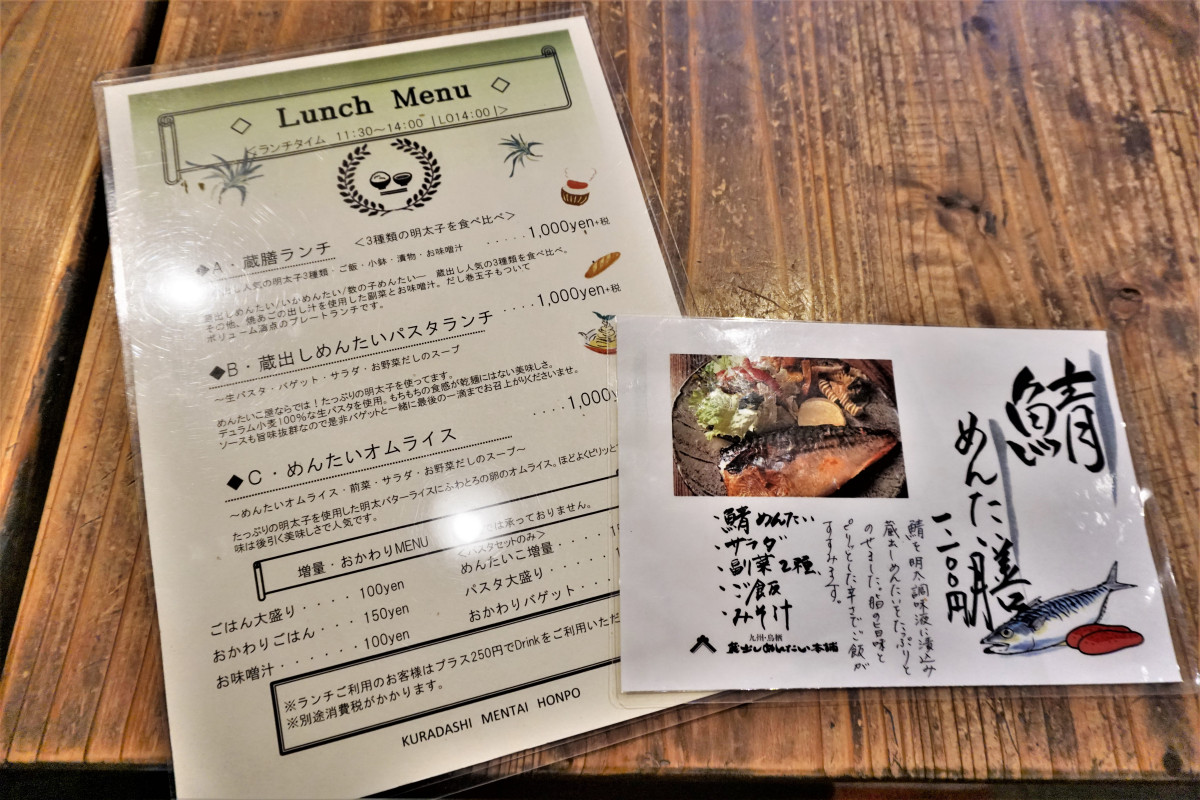 Lunch Menu
<ランチタイム 11:30~14:00 |LO14:00|>
◆A・蔵膳ランチ <3種類の明太子を食べ比べ> ·····1,000yen+税
人気の明太子3種類・ご飯・小鉢・漬物・お味噌汁
蔵出しめんたい/いかめんたい/数の子めんたい― 蔵出し人気の3種類を食べ比べ。
その他、焼あごの出し汁を使用した副菜とお味噌汁。だし巻玉子もついて
ボリューム満点のプレートランチです。
◆B・蔵出しめんたいパスタランチ ·····1,000yen+税
~生パスタ・バゲット・サラダ・お野菜だしのスープ
めんたいこ屋ならでは!たっぷりの明太子を使ってます。
デュラム小麦100%な生パスタを使用。もちもちの食感が乾麺にはない美味しさ。
ソースも旨味抜群なので是非バゲットと一緒に最後の一滴までお召上がりくださいませ。
◆C・めんたいオムライス ····1,000y
~めんたいオムライス・前菜・サラダ・お野菜だしのスープ~
たっぷりの明太子を使用した明太バターライスにふわとろの卵のオムライス。ほどよくピリッと
味は後引く美味しさで人気です。
増量・おかわりMENU
では承っておりません。
ごはん大盛り·····100yen
おかわりごはん···150yen
お味噌汁·······100yen
<パスタセットのみ>
めんたいこ増量
パスタ大盛り
おかわりバゲット
※ランチご利用のお客様はプラス250円でDrinkをご利用いただ
※別途消費税がかかります。
KURADASHI MENTAI HONPO
鯖
めんたい膳
一二〇〇円
鯖を明太調味液に漬込み
蔵出しめんたいをたっぷりと
のせました。脂の旨味と
ピリッとした辛さでご飯が
すすみます。
・鯖めんたい
・サラダ
・副菜2種、
・ご飯
・みそ汁
九州・鳥栖
蔵出しめんたい本舗